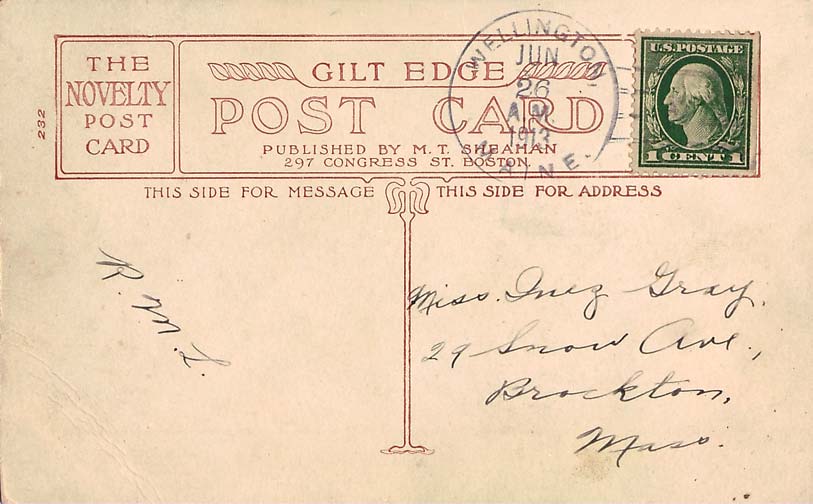 THE
NOVELTY
POST
CARD
232
GILT EDGE
POST CARD
PUBLISHED BY M. T. SHEAHAN
297 CONGRESS ST. BOSTON.
THIS SIDE FOR MESSAGE
THIS SIDE FOR ADDRESS
WELLINGTON
JUN
26
A M
1913
MAINE.
U.S. POSTAGE
1 CENT 1
Miss. Inez Gray.
29 Snow Ave.,
Brockton,
Mass.